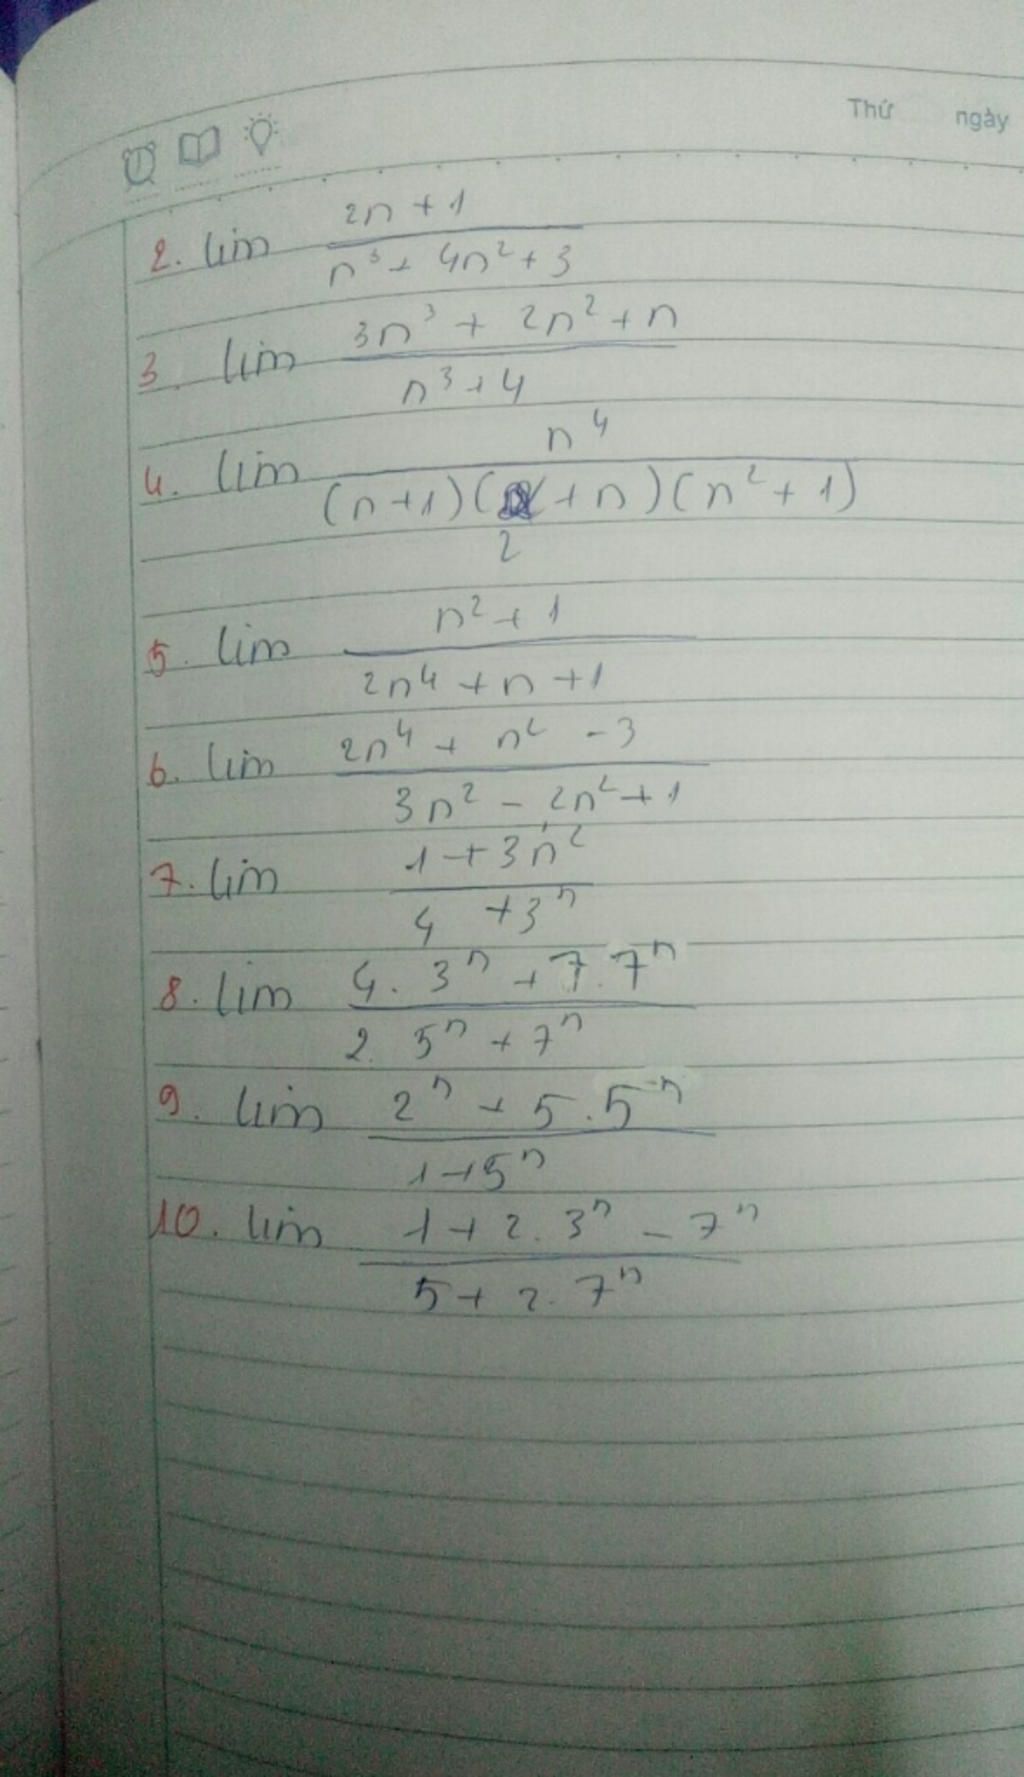 Thứ ngày
2. lim (2n + 1) / (n³ + 4n² + 3)
3. lim (3n³ + 2n² + n) / (n³ + 4)
4. lim n⁴ / ((n+1)(2+n)(n²+1))
5. lim (n² + 1) / (2n⁴ + n + 1)
6. lim (2n⁴ + n² - 3) / (3n² - 2n² + 1)
7. lim (1 + 3n²) / (4 + 3ⁿ)
8. lim (4. 3ⁿ + 7.7ⁿ) / (2. 5ⁿ + 7ⁿ)
9. lim (2ⁿ + 5.5ⁿ) / (1+5ⁿ)
10. lim (1 + 2. 3ⁿ - 7ⁿ) / (5 + 2. 7ⁿ)